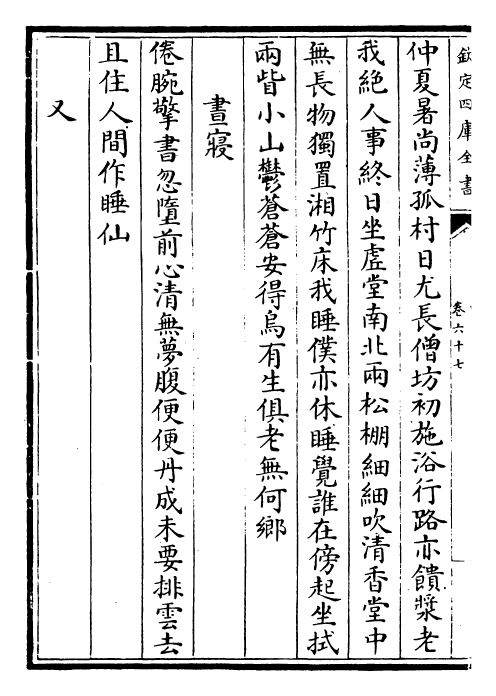 欽定四庫全書
卷六十七
仲夏暑尚薄孤村日尤長僧坊初施浴行路亦饋漿老
我絶人事終日坐虛堂南北兩松棚細細吹清香堂中
無長物獨置湘竹床我睡僕亦休睡覺誰在傍起坐拭
兩眥小山鬱蒼蒼安得烏有生俱老無何鄉
晝寢
倦腕擎書忽墮前心清無夢腹便便丹成未要排雲去
且住人間作睡仙
又